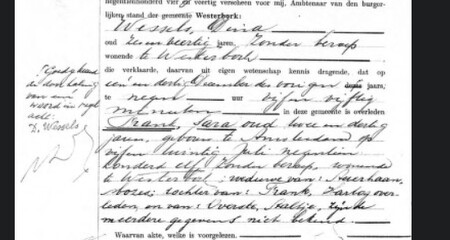 negentienhonderd vier en veertig verscheen voor mij, Ambtenaar van den burger-
lijken stand der gemeente Westerbork:
Wessels, Dina
oud zeven en veertig jaren, zonder beroep
wonende te Westerbork
die verklaarde, daarvan uit eigen wetenschap kennis dragende, dat op
een en dertig December des vorigen jaars,
te negen uur vijf en vijftig
minuten in deze gemeente is overleden
Frank, Sara oud twee en dertig
jaren, geboren te Amsterdam op
vijf en twintig Juli negentien
honderd elf zonder beroep, wonende
te Westerbork weduwe van:
Mozes; dochter van: Frank, Hartog over-
leden, en van: Voorst, Aaltje, zijnde
meerdere gegevens niet bekend.
Waarvan akte, welke is voorgelezen.
Goedgekeurd
de doorhaling
van een
woord in regel
acht.
D. Wessels